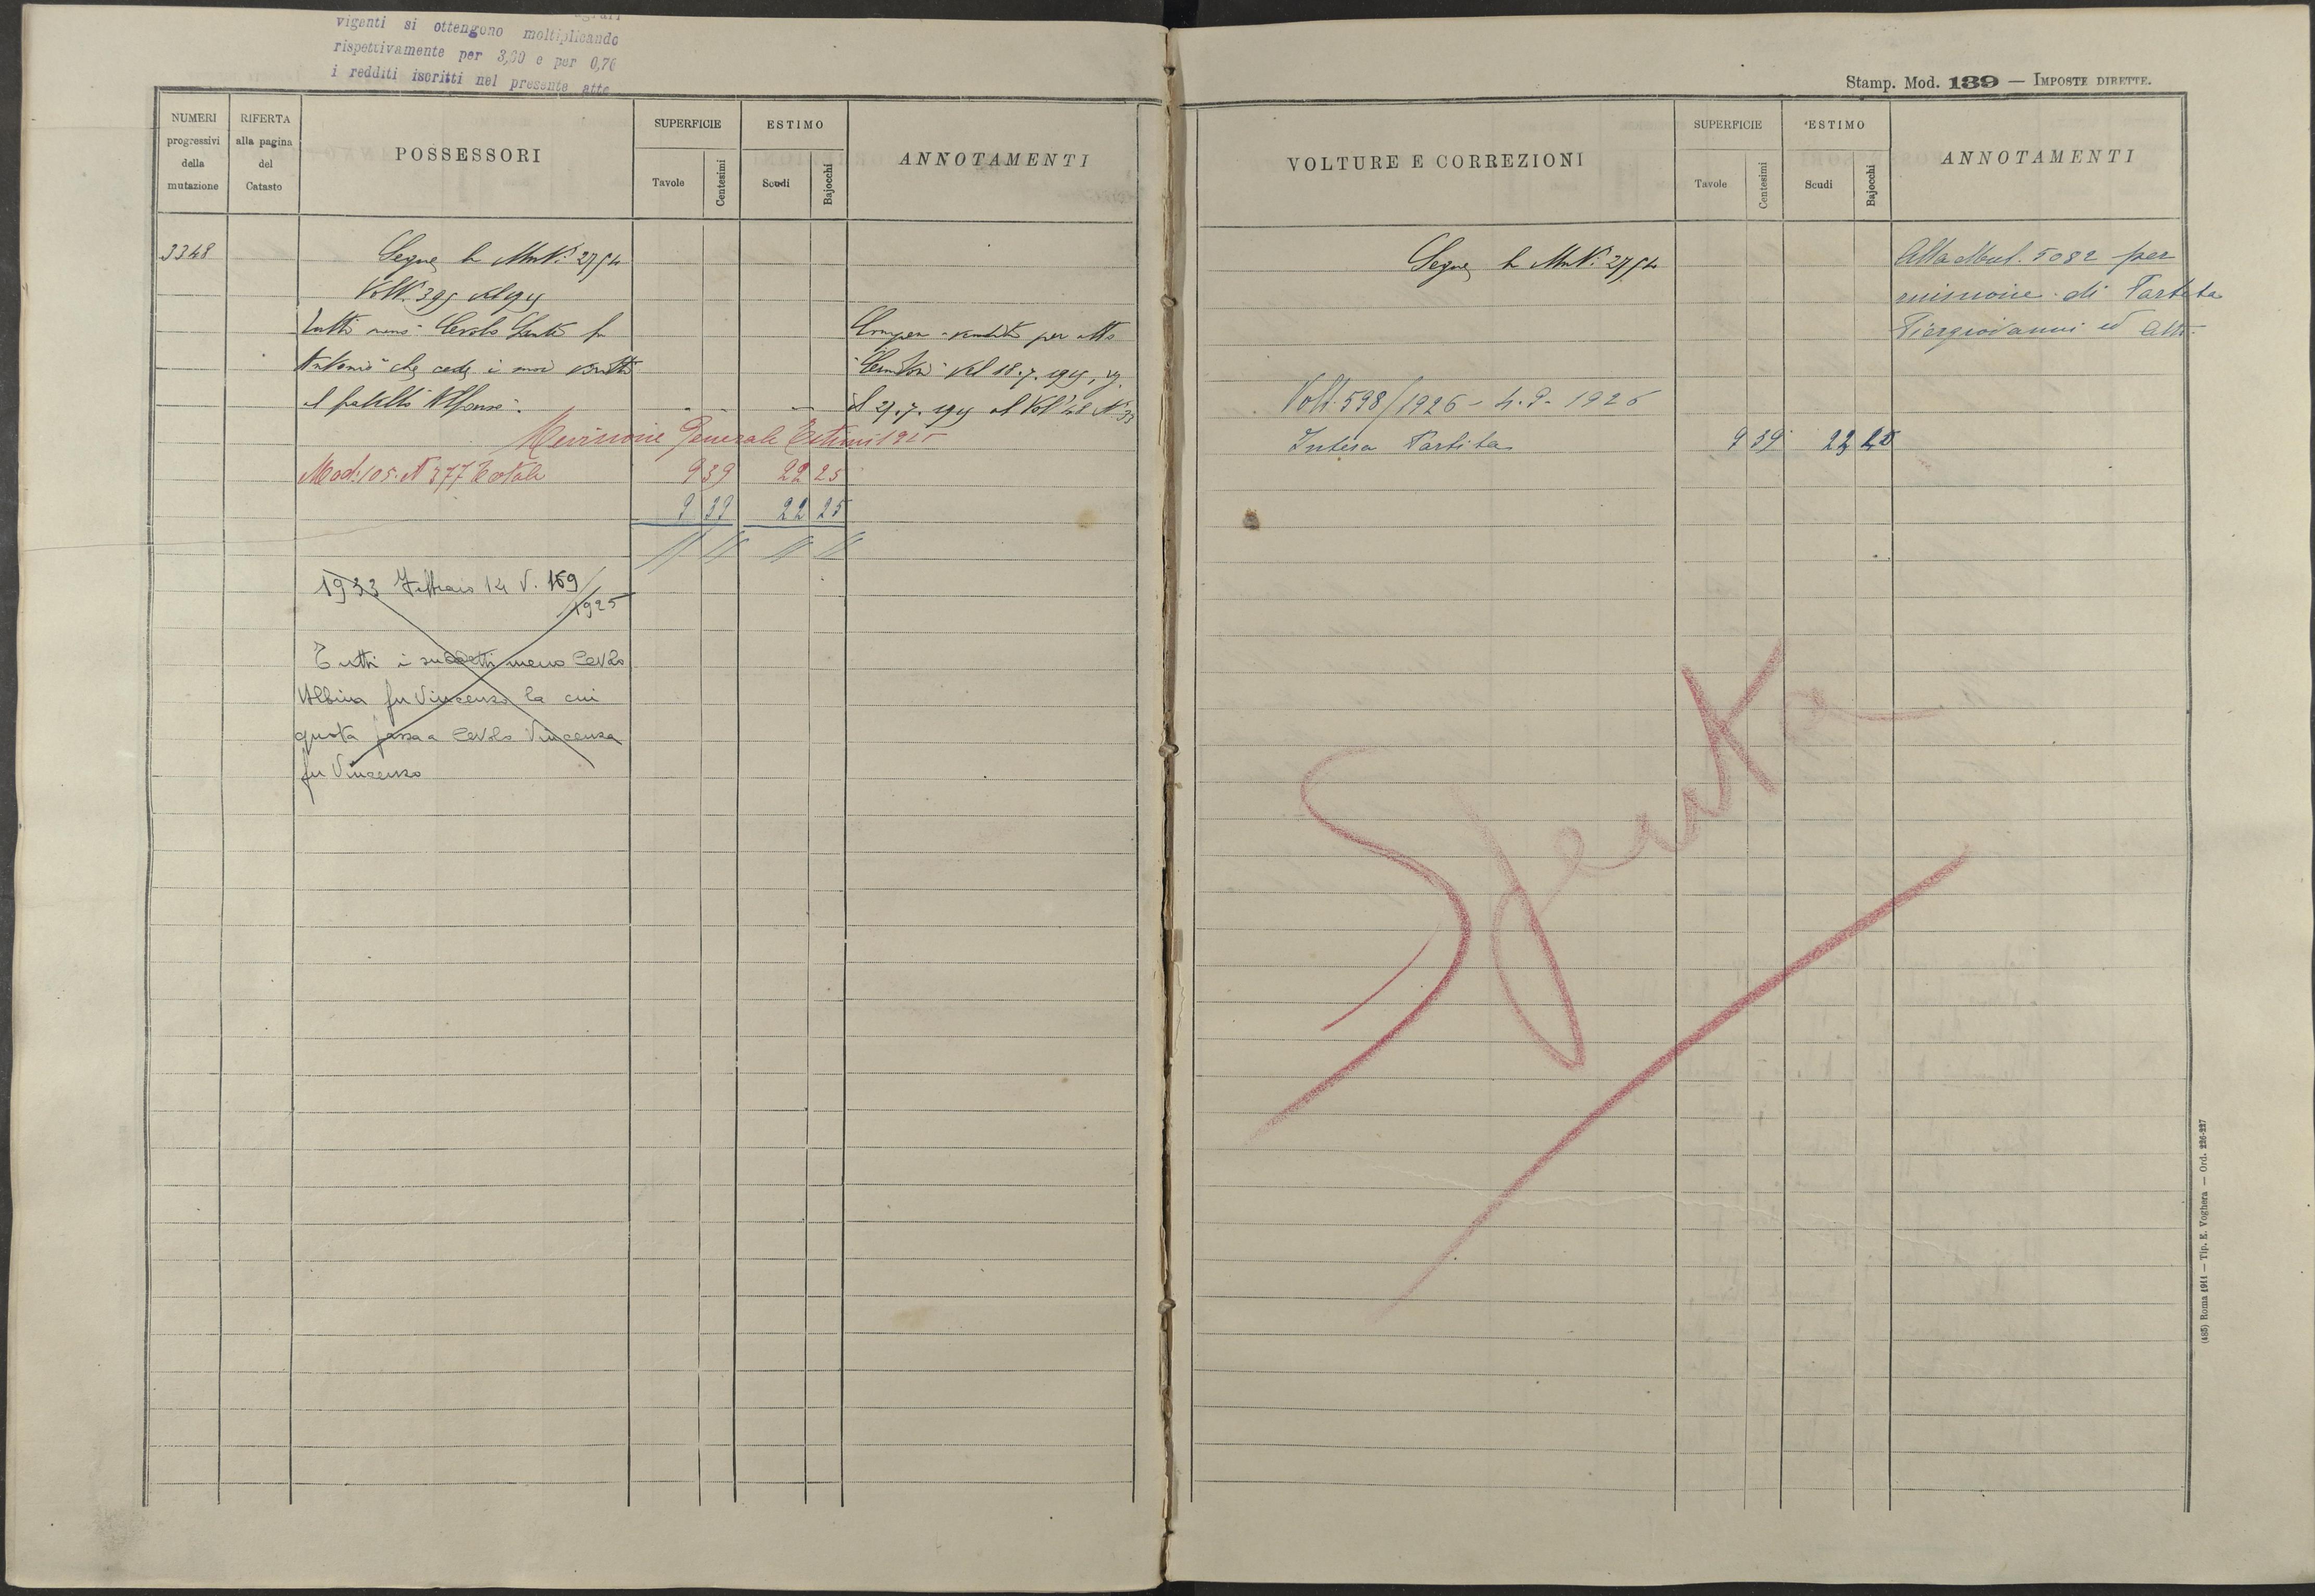 viganti si ottengono moltiplicando
rispettivamente per 3,60 e per 0,76
i redditi iscritti nel presente atto
NUMERI
progressivi
della
mutazione
RIFERTA
alla pagina
del
Catasto
POSSESSORI
SUPERFICIE
Tavole
Centesimi
ESTIMO
Scudi
Bajocchi
ANNOTAMENTI
3348
Segue la Mut. N. 2754
Volt. 395 del
tutti meno Cevolo Santi fu
Antonio che cede i suoi diritti
al fratello Alfonso.
Compra-vendita per atto
del 18.7.
il 27.7. al Vol. 48 N. 33
Revisione Generale Estimi 1925
Mod. 105. N 377 Totale 9 39 22 25
9 39 22 25
1933 Febbraio 14 V. 159/1925
Tutti i suddetti meno Cevolo
Albina fu Vincenzo la cui
quota passa a Cevolo Vincenza
fu Vincenzo
Stamp. Mod. 139 — IMPOSTE DIRETTE.
VOLTURE E CORREZIONI
SUPERFICIE
Tavole
Centesimi
ESTIMO
Scudi
Bajocchi
ANNOTAMENTI
Segue la Mut. N. 2754
Alla Mut. 5082 per
riunione di Partita
Piergiovanni ed Altri
Volt. 598/1926 - 4.9.1926
Intera Partita 9 39 22 25
Spenta
(485) Roma 1911 — Tip. E. Voghera — Ord. 226-227